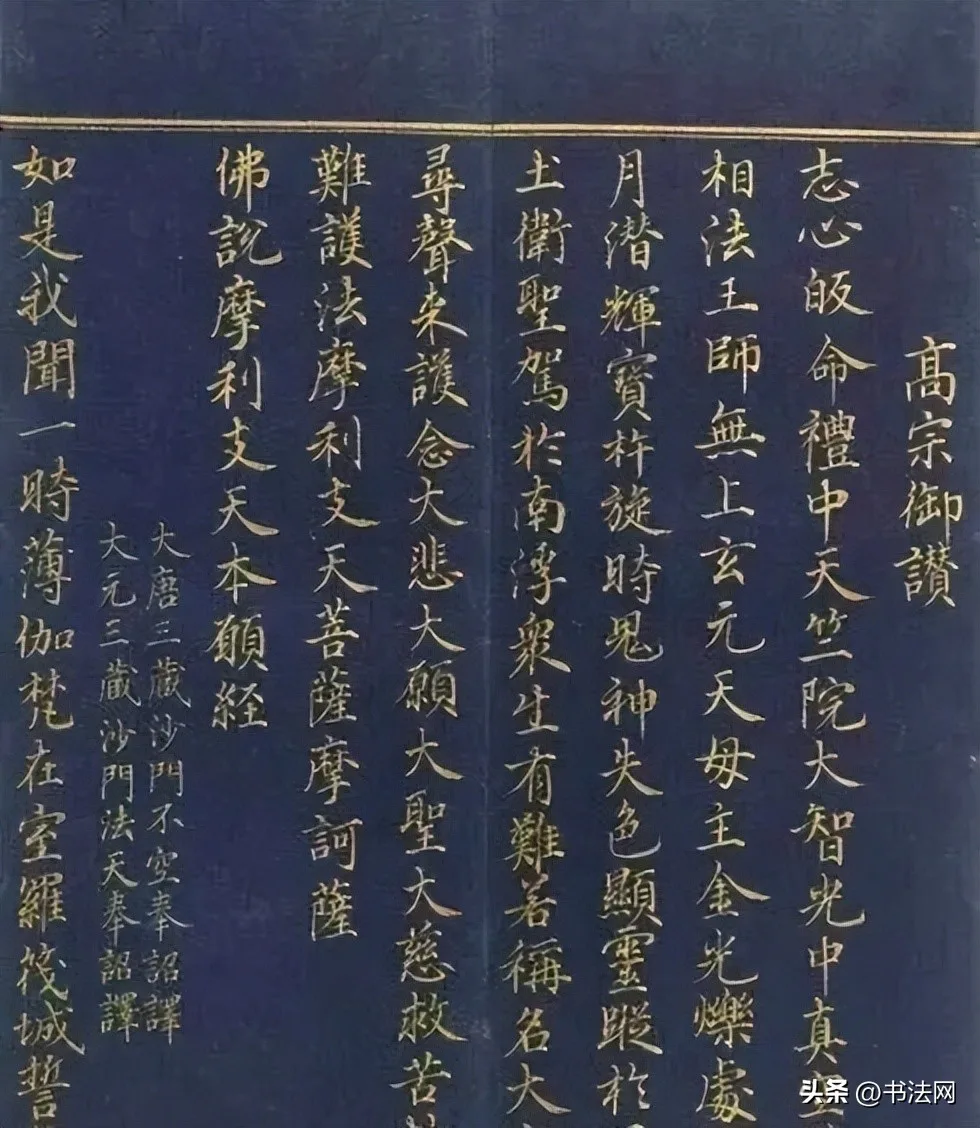 高宗御讃
志心皈命禮中天竺院大智光中真空
相法王師無上玄元天母主金光爍處
月潜輝寶杵旋時鬼神失色顯靈蹤於
土衛聖駕於南浮衆生有難若稱名大
尋聲来護念大悲大願大聖大慈救苦
難護法摩利支天菩薩摩訶薩
佛説摩利支天本願経
大唐三藏沙門不空奉詔譯
大元三藏沙門法天奉詔譯
如是我聞一時薄伽梵在室羅筏城誓
头条 @书法网